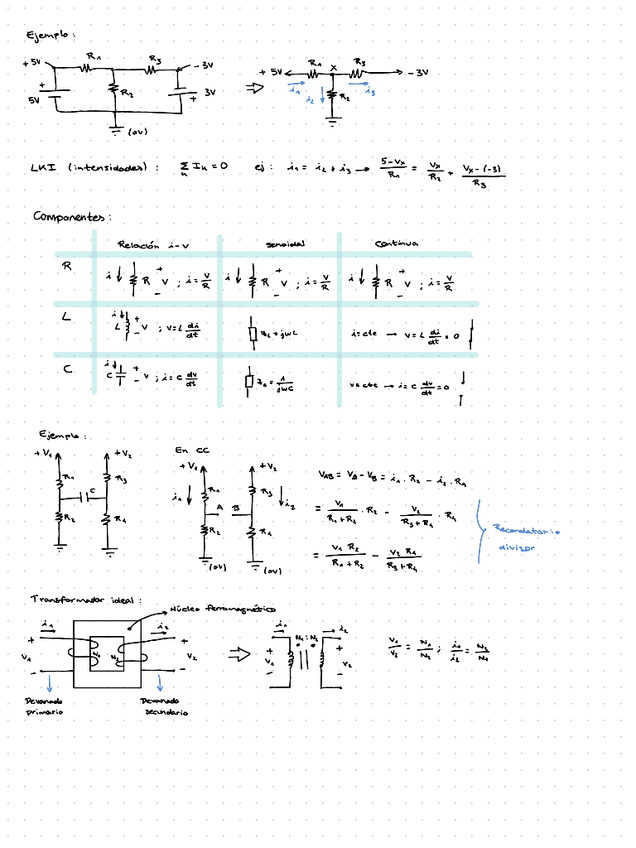 Ejemplo:
+5V R₁ R₃ -3V
+ 5V R₂ 3V +
(0V)
+5V R₁ X R₃ -3V
i₁ i₂ R₂ i₃
LKI (intensidades): Σ Iₙ = 0 ej: i₁ = i₂ + i₃ → (5-Vx)/R₁ = Vx/R₂ + (Vx-(-3))/R₃
n
Componentes:
Relación i-V Senoidal Continua
R i ↓ R + V - ; i = V/R i ↓ R + V - ; i = V/R i ↓ R + V - ; i = V/R
L i ↓ L + V - ; V = L di/dt = jωL i = cte → V = L di/dt = 0
C i ↓ C + V - ; i = C dv/dt = 1/jωC V = cte → i = C dv/dt = 0
Ejemplo:
+V₁ +V₂
R₁ C R₃
R₂ R₄
En CC
+V₁ +V₂
i₁ R₁ R₃ i₂
A B
R₂ R₄
(0V) (0V)
V_AB = V_A - V_B = i₁ · R₂ - i₂ · R₄
= V₁/(R₁+R₂) · R₂ - V₂/(R₃+R₄) · R₄
= V₁ R₂/(R₁+R₂) - V₂ R₄/(R₃+R₄)
Recordatorio
divisor
Transformador ideal:
Núcleo ferromagnético
i₁ i₂
+ V₁ - N₁ N₂ + V₂ -
Devanado primario
Devanado secundario
i₁ N₁ : N₂ i₂
+ V₁ - + V₂ -
V₁/V₂ = N₁/N₂ ; i₁/i₂ = N₂/N₁